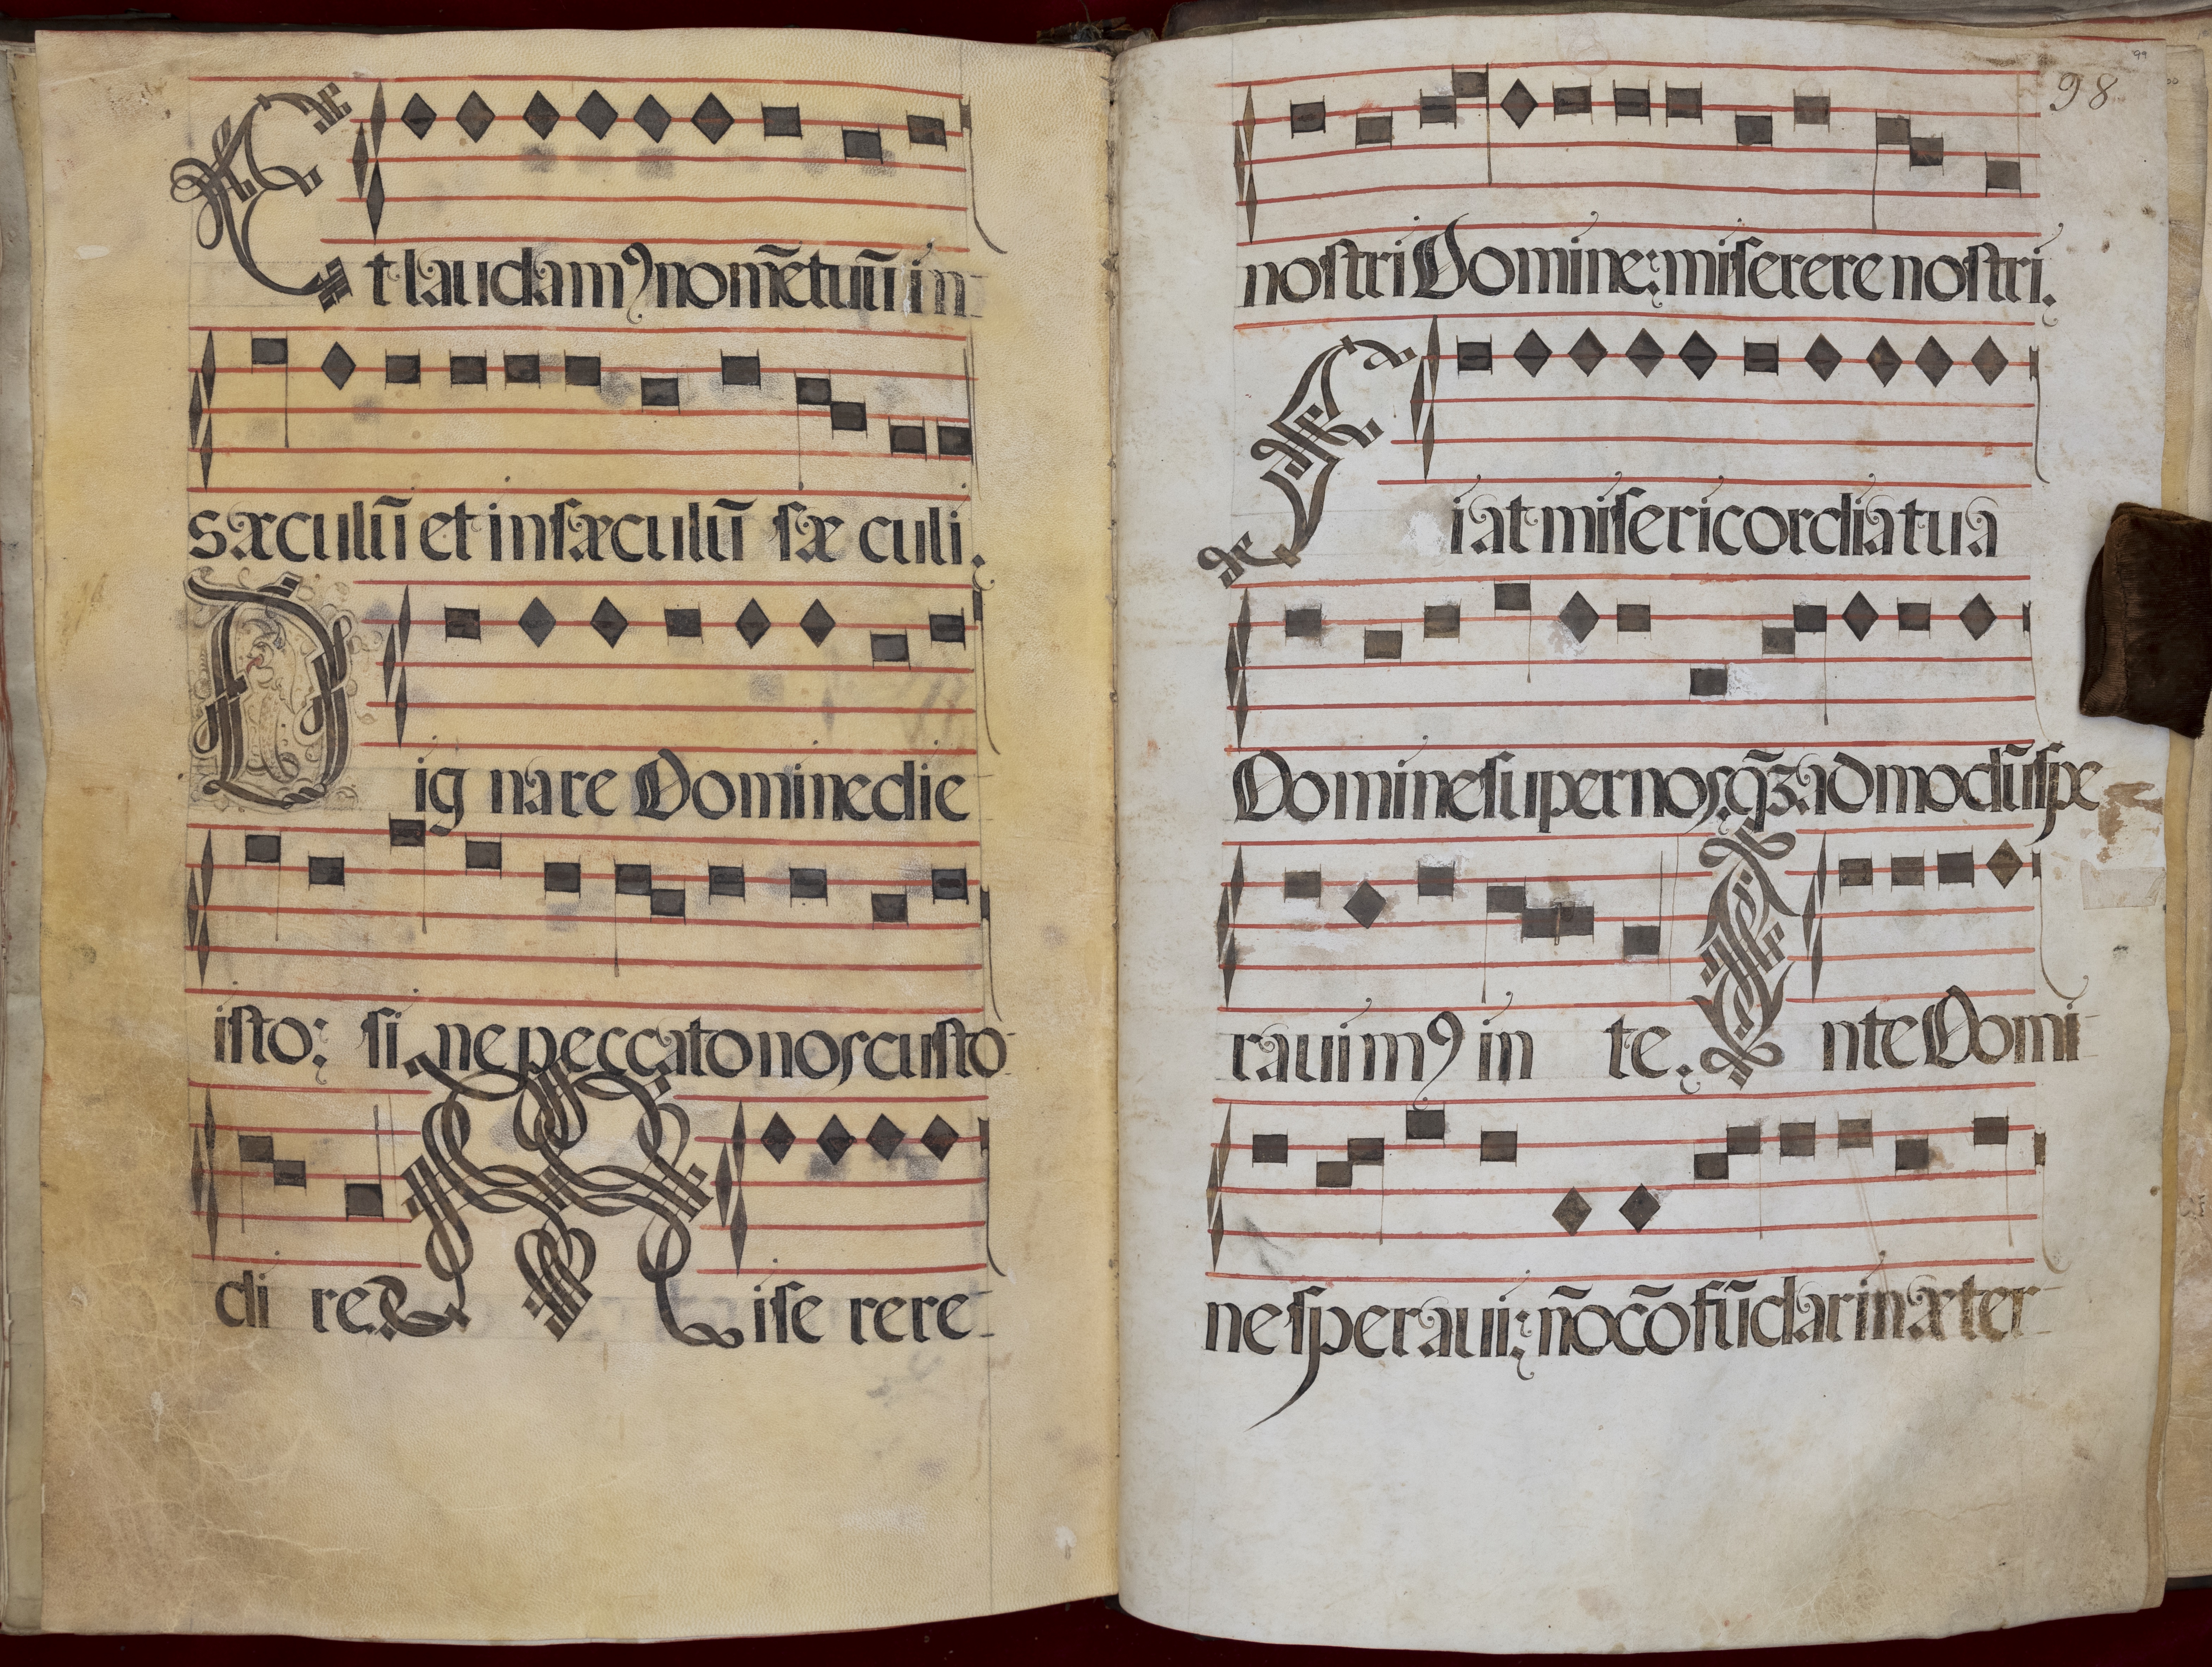 Et laudamꝰ nom̃e tuũ in
sæculũ et in sæculũ sæ culi.
Dig nare Domine die
isto: si ne peccato nos custo
di re. Mise rere
98
nostri Domine: miserere nostri.
Fiat misericordia tua
Domine super nos, q̃ꝫadmodũ spe
rauimꝰ in te. Inte Domi
ne speraui: ñ cõfũdar in æter